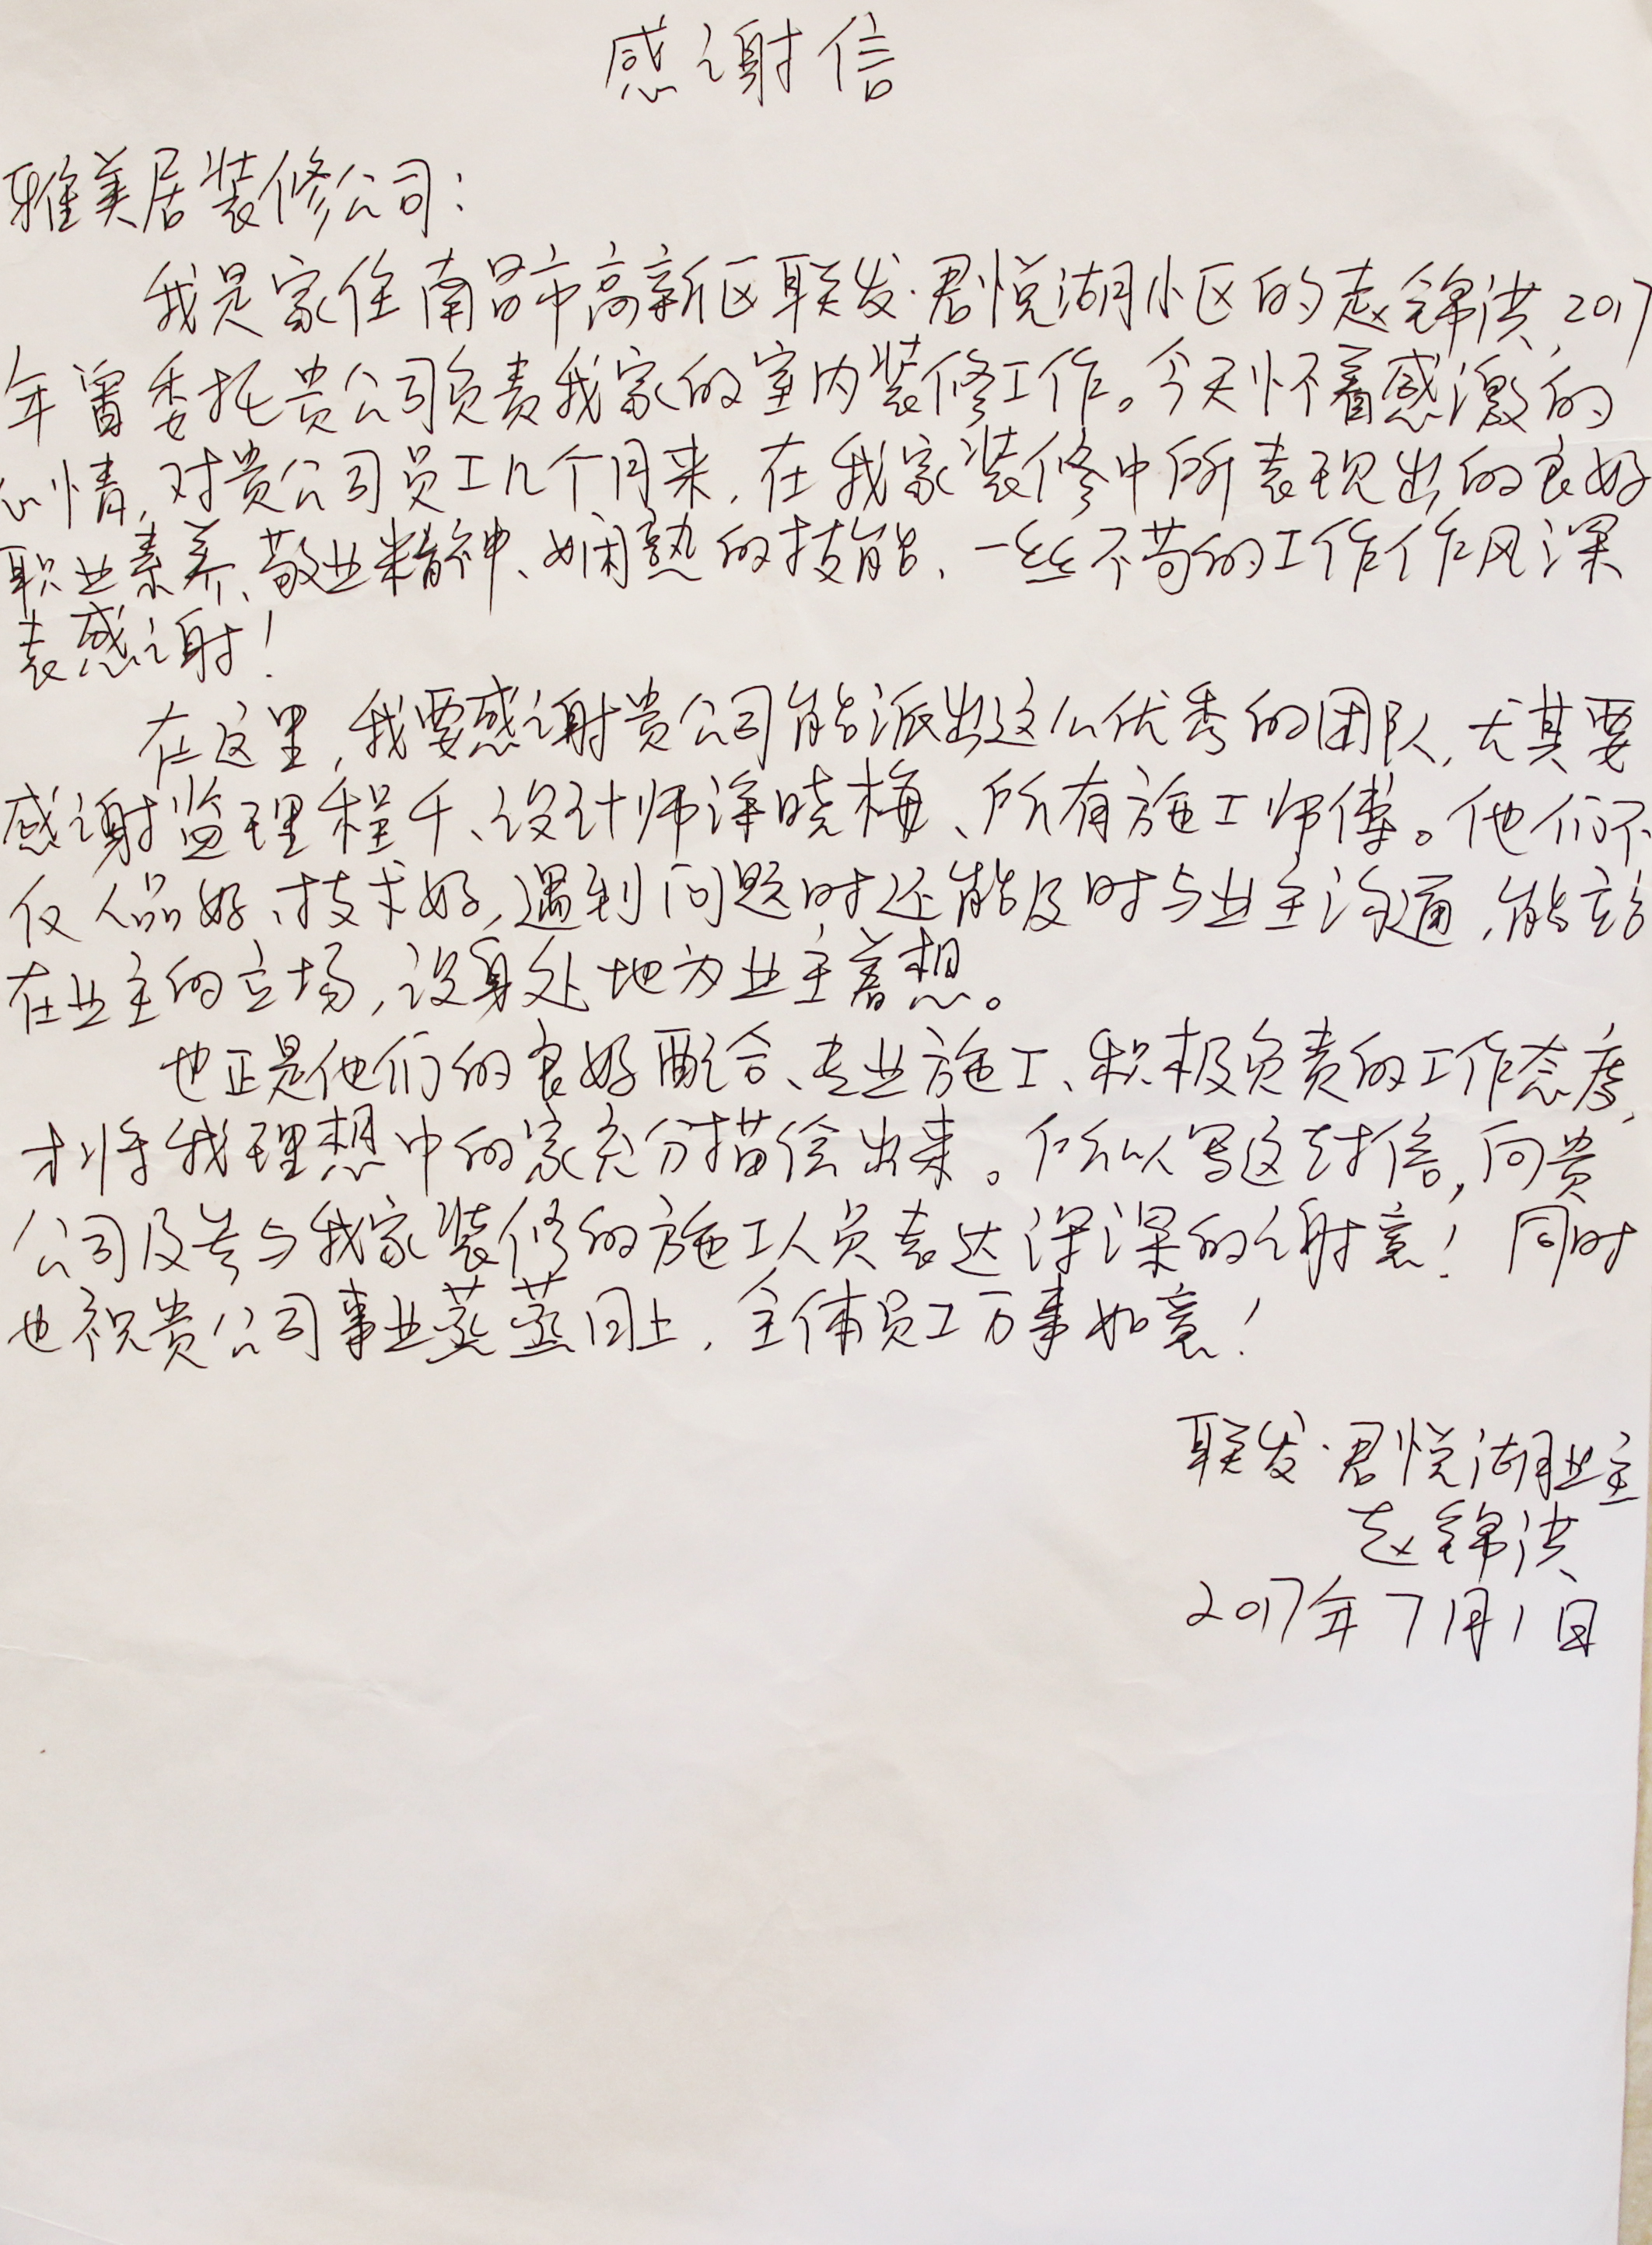 感谢信
雅美居装修公司：
我是家住南昌市高新区联发·君悦湖小区的赵锦洪，2017
年曾委托贵公司负责我家的室内装修工作。今天怀着感激的
心情，对贵公司员工几个月来，在我家装修中所表现出的良好
职业素养、敬业精神、娴熟的技能、一丝不苟的工作作风深
表感谢！
在这里，我要感谢贵公司能派出这么优秀的团队，尤其要
感谢监理程千、设计师涂晓梅、所有施工师傅。他们不
仅人品好、技术好，遇到问题时还能及时与业主沟通，能站
在业主的立场，设身处地为业主着想。
也正是他们的良好配合、专业施工、积极负责的工作态度，
才将我理想中的家充分描绘出来。所以写这封信，向贵
公司及参与我家装修的施工人员表达深深的谢意！同时
也祝贵公司事业蒸蒸日上，全体员工万事如意！
联发·君悦湖业主
赵锦洪
2017年7月1日